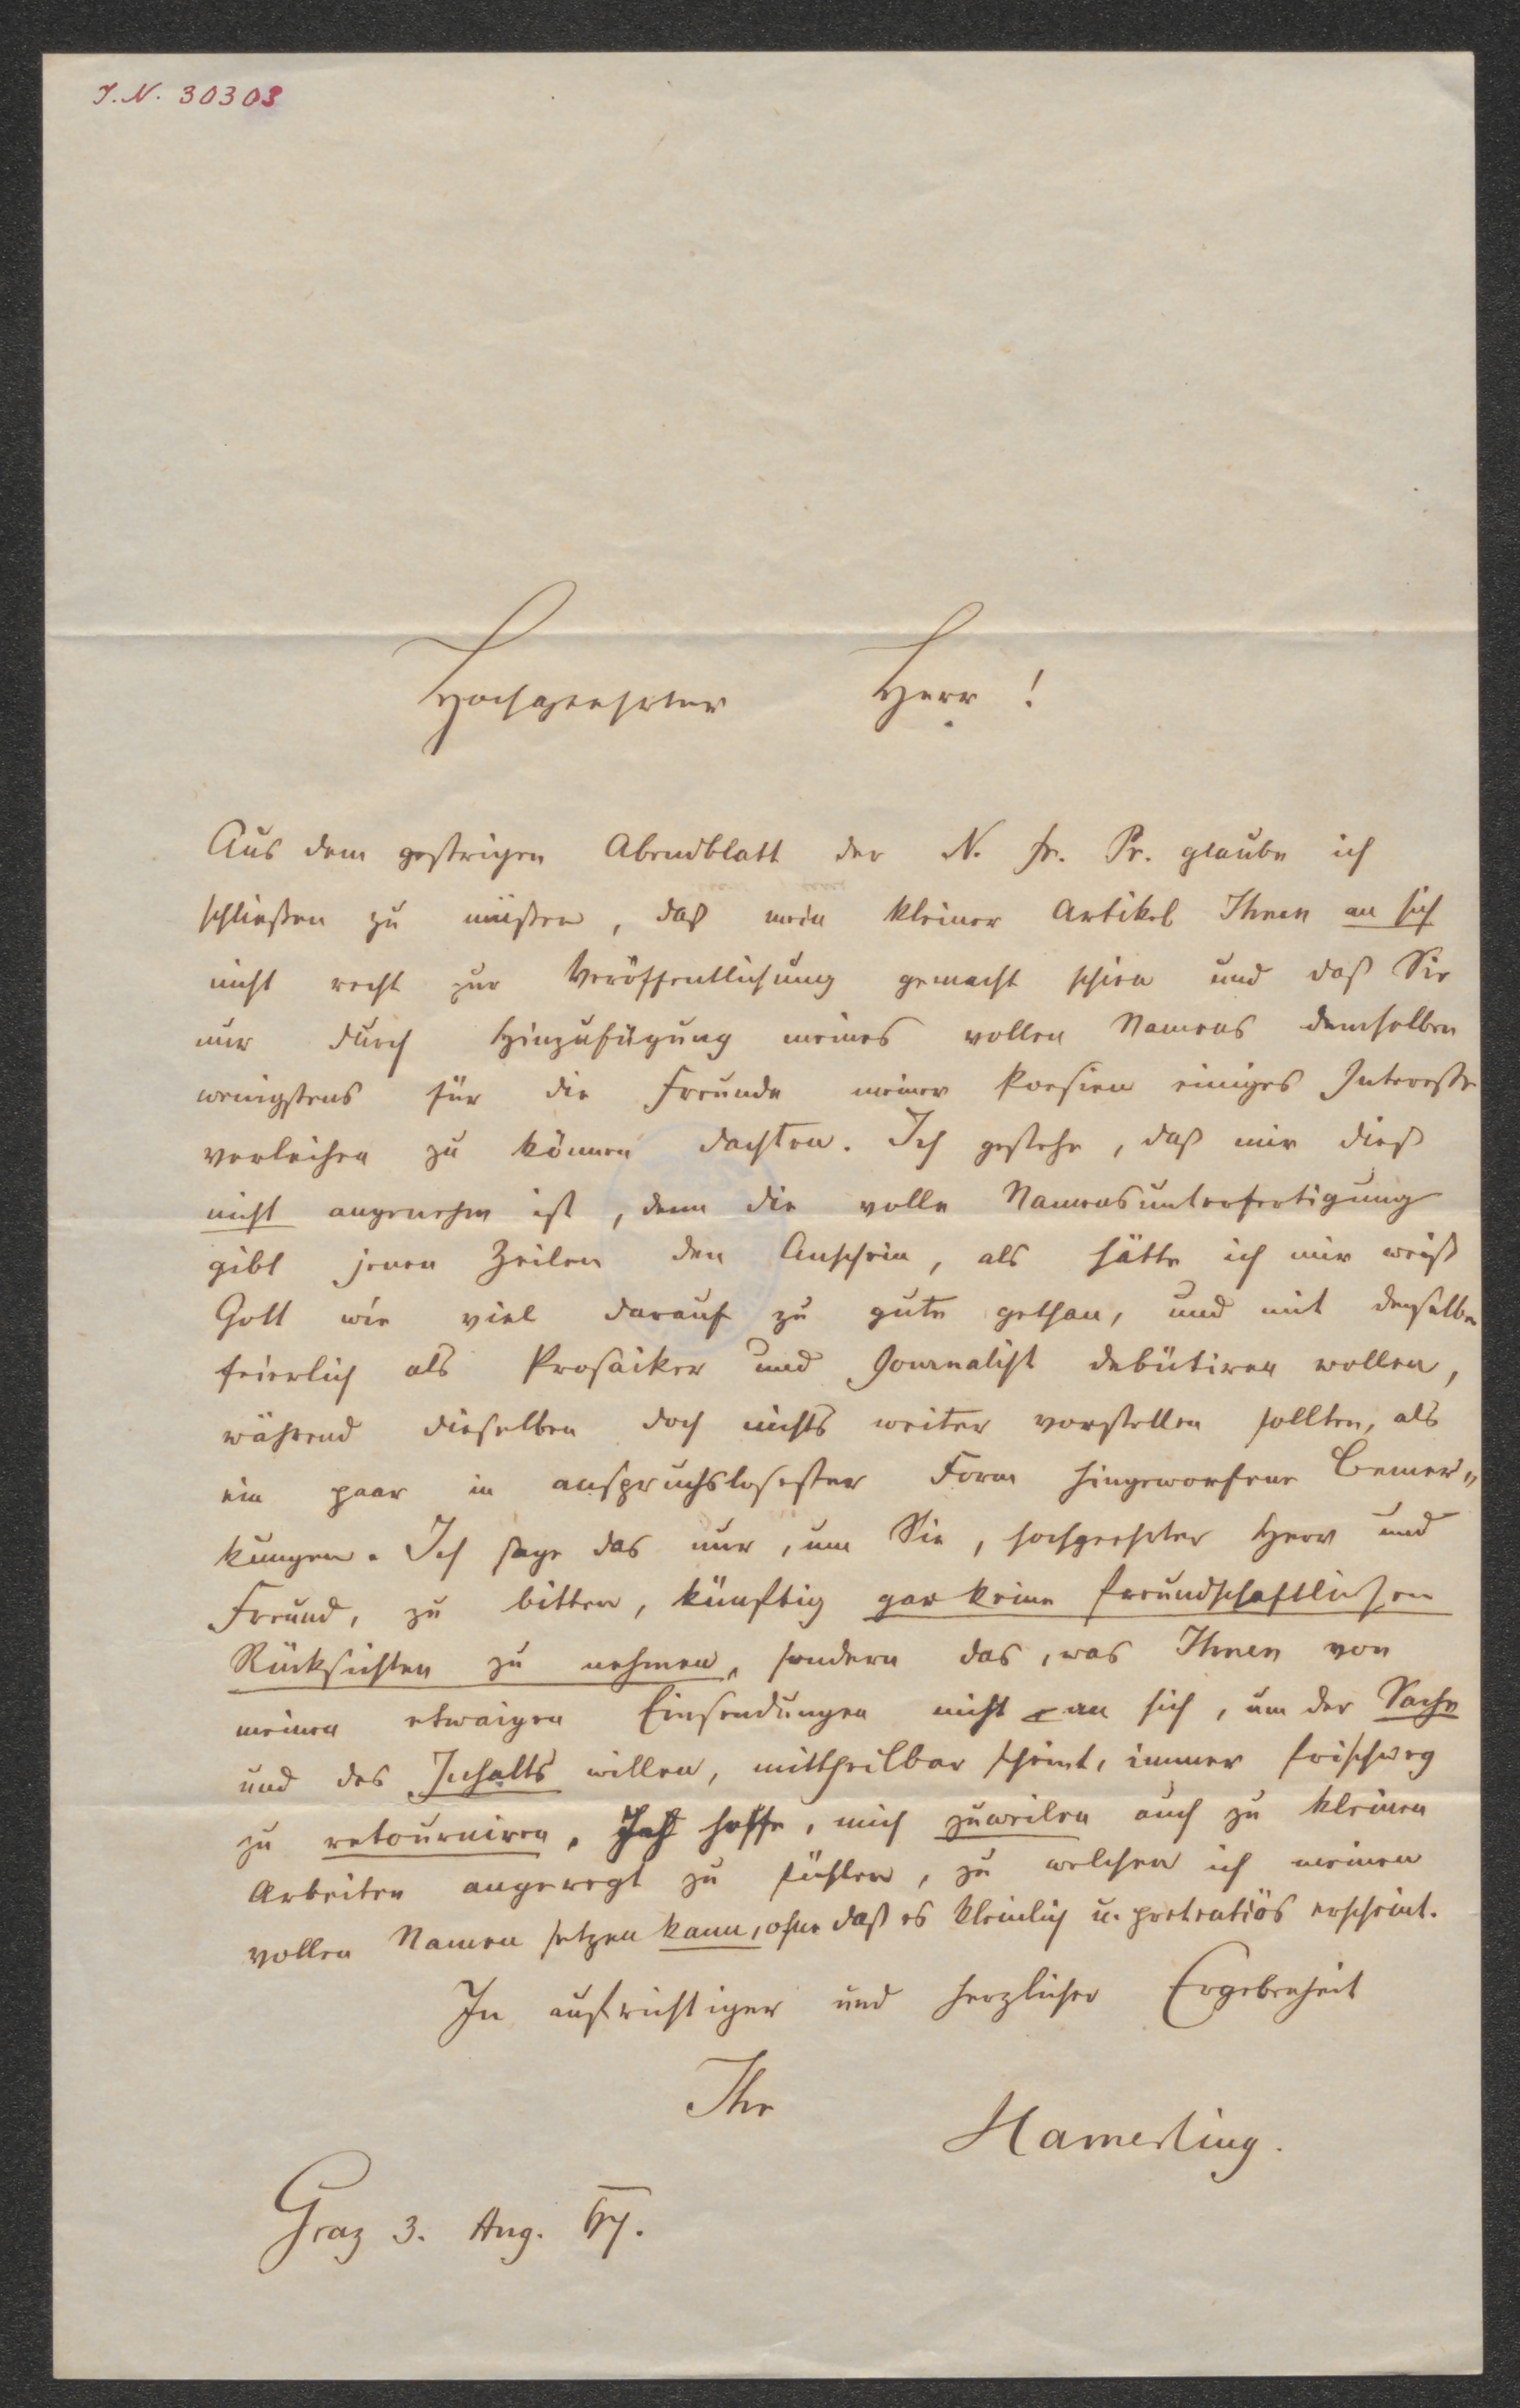 I.N. 30303
Hochgeehrter Herr !
Aus dem gestrigen Abendblatt der N. fr. Pr. glaube ich
schließen zu müßen, daß mein kleiner Artikel Ihnen an sich
nicht recht zur Veröffentlichung gemacht schien und daß Sie
nur durch Hinzufügung meines vollen Namens demselben
wenigstens für die Freunde meiner Poesien einiges Interesse
verleihen zu können dachten. Ich gestehe, daß mir dieß
nicht angenehm ist, denn die volle Namensunterfertigung
gibt jenen Zeilen den Anschein, als hätte ich mir weiß
Gott wie viel darauf zu gute gethan, und mit denselben
feierlich als Prosaiker und Journalist debütiren wollen,
während dieselben doch nichts weiter vorstellen sollten, als
ein paar in anspruchslosester Form hingeworfene Bemer„
kungen. Ich sage das nur, um Sie, hochgeehrter Herr und
Freund, zu bitten, künftig gar keine freundschaftlichen
Rücksichten zu nehmen, sondern das, was Ihnen von
meinen etwaigen Einsendungen nicht an sich, um der Sache
und des Inhalts willen, mittheilbar scheint, immer frischweg
zu retourniren. Ich hoffe, mich zuweilen auch zu kleinen
Arbeiten angeregt zu fühlen, zu welchen ich meinen
vollen Namen setzen kann, ohne daß es kleinlich u. pretentiös erscheint.
In aufrichtiger und herzlicher Ergebenheit
Ihr
Hamerling.
Graz 3. Aug. 67.